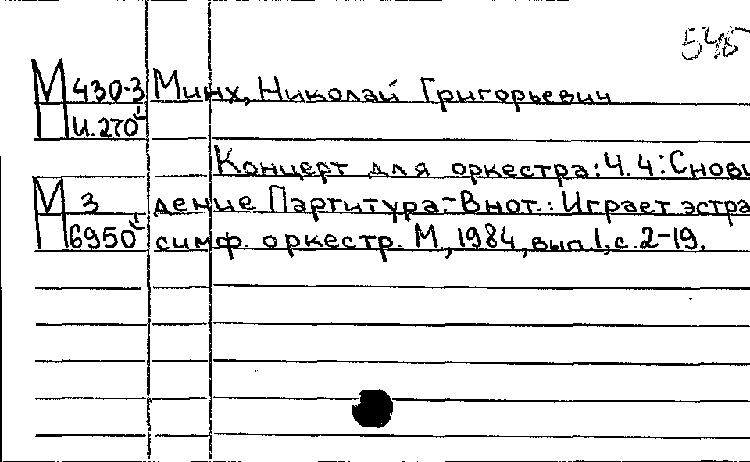 545
М 430-3 Минх, Николай Григорьевич
И.270
Концерт для оркестра: Ч. 4: Снови
М 3 дение Партитура.-В нот.: Играет эстра
6950 симф. оркестр. М, 1984, вып.1, с. 2-19.